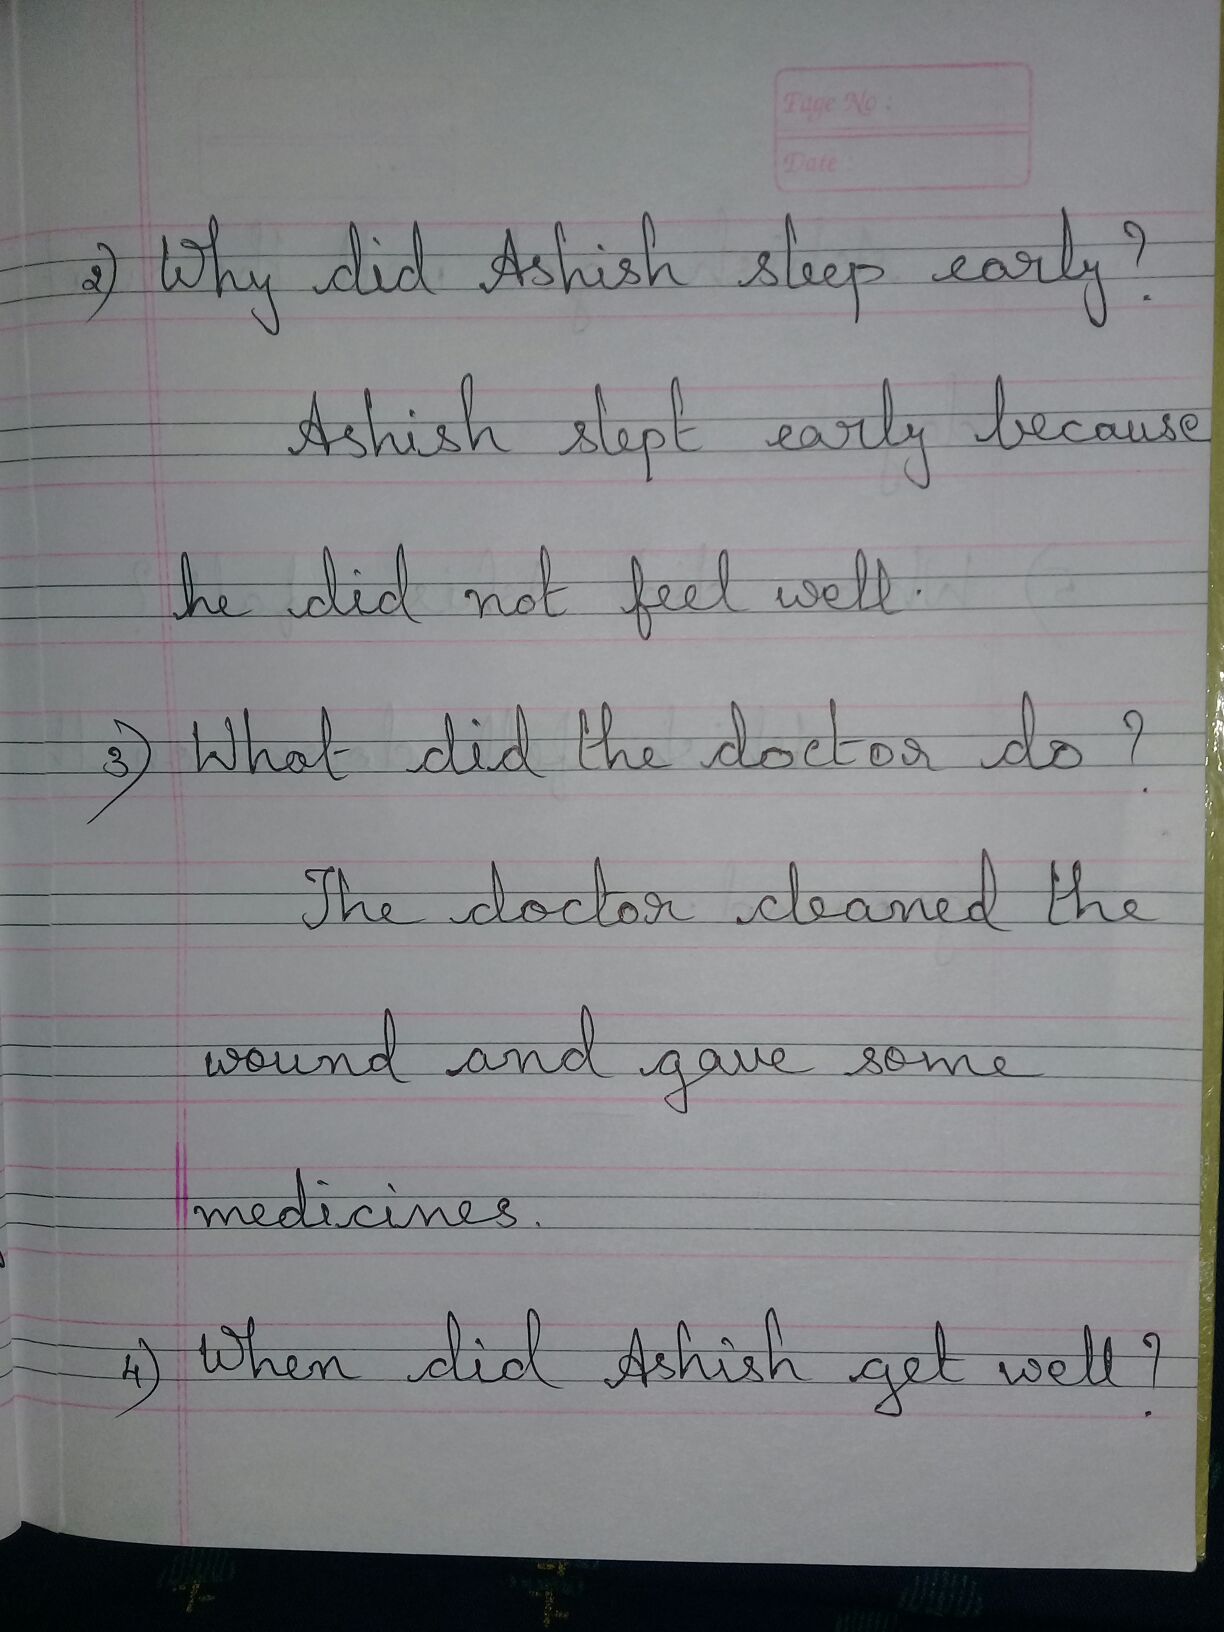 Page No :
Date :
2) Why did Ashish sleep early?
Ashish slept early because
he did not feel well.
3) What did the doctor do?
The doctor cleaned the
wound and gave some
medicines.
4) When did Ashish get well?